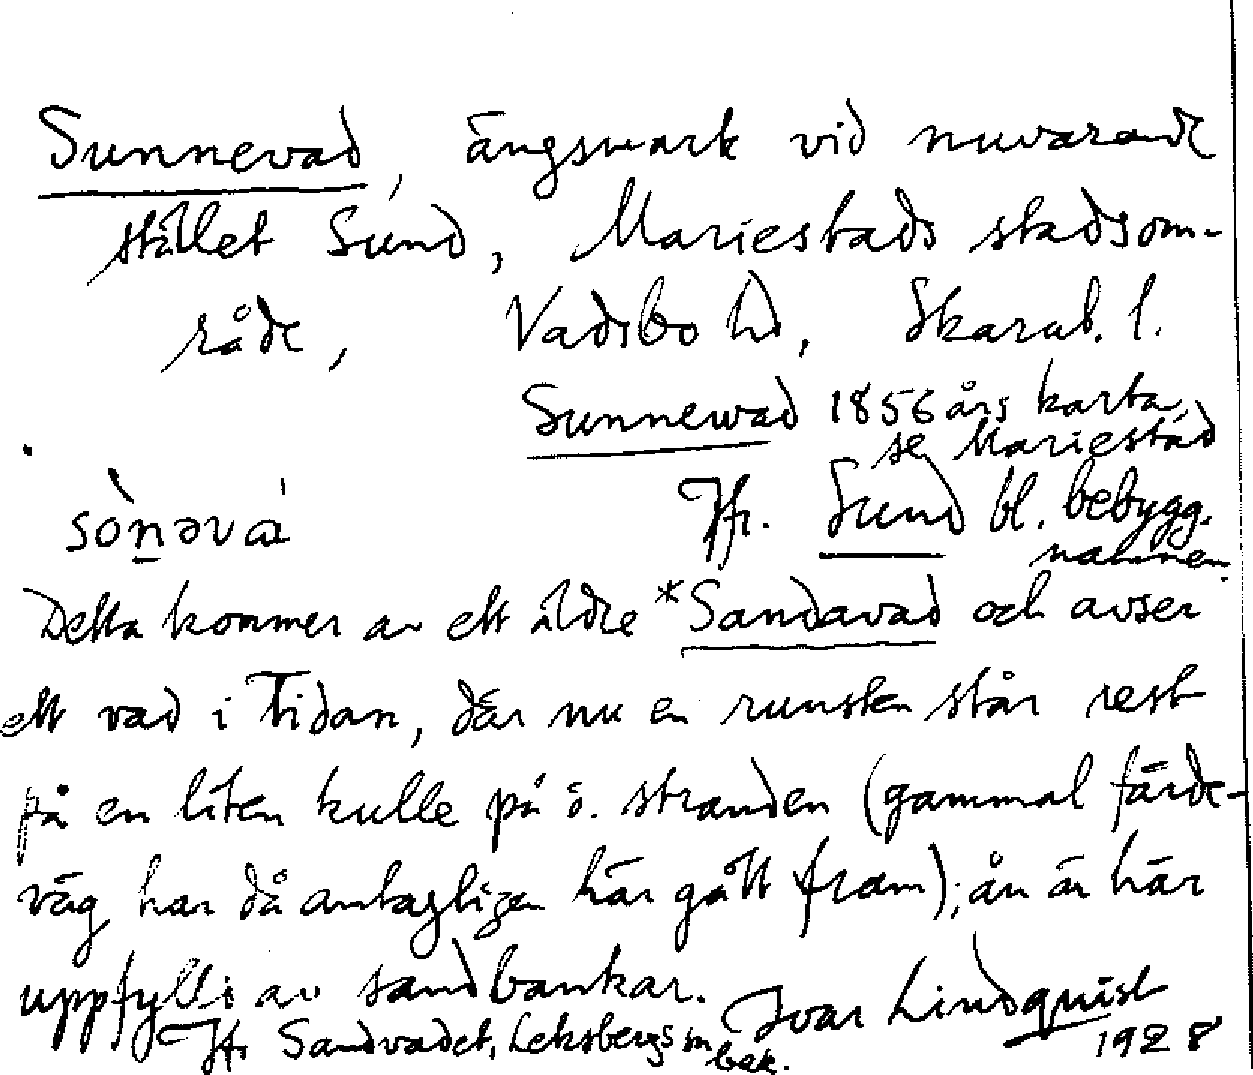 Sunnevad, ängsmark vid nuvarande
stället Sund, Mariestads stadsom-
råde, Vadsbo hd, Skarab. l.
Sunnewad 1856 års karta,
se Mariestad
Jfr. Sund bl. bebygg.
namnen.
Detta kommer av ett äldre *Sandavad och avser
ett vad i Tidan, där nu en runsten står rest
på en liten kulle på ö. stranden (gammal färde-
väg har då antagligen här gått fram); ån är här
uppfylld av sandbankar.
Ivar Lindquist
1928
Jfr Sandvadet, Leksbergs sn
bek.